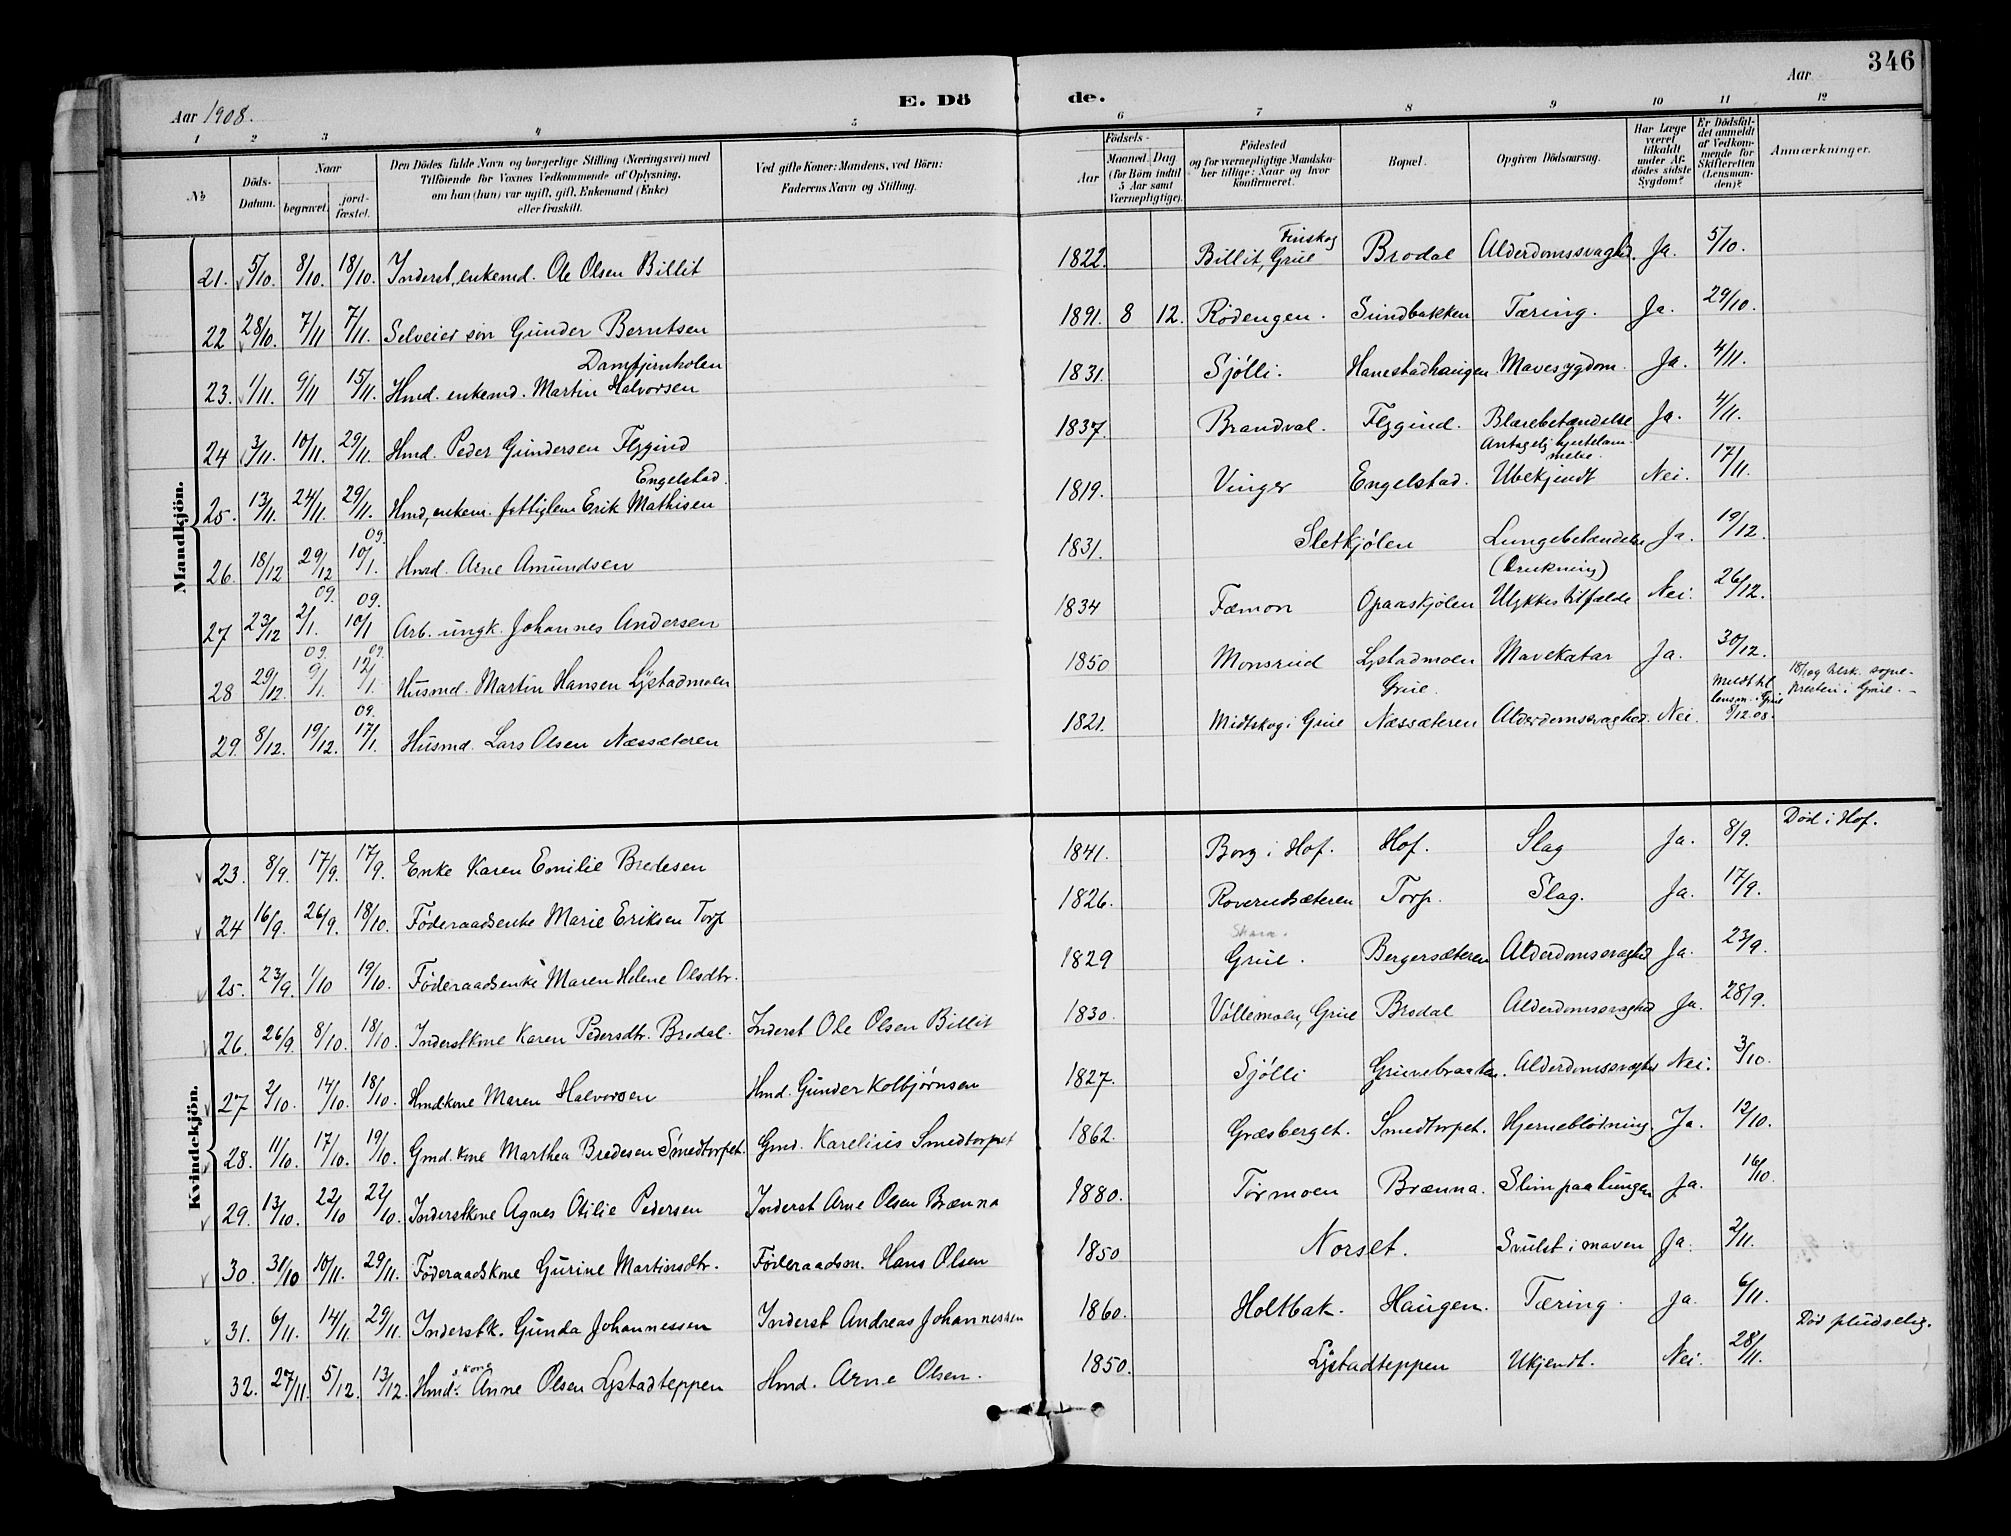 346
Aar 1908.
E. Dö
de.
Aar
1 2 3 4 5 6 7 8 9 10 11 12
No
Döds-Datum.
Naar
begravet.
jord-fæstet.
Den Dödes fulde Navn og borgerlige Stilling (Næringsvei) med
Tilföiende for Voxnes Vedkommende af Oplysning,
om han (hun) var ugift, gift, Enkemand (Enke)
eller fraskilt.
Ved gifte Koner: Mandens, ved Börn:
Faderens Navn og Stilling.
Födsels-
Aar
Maaned. Dag
(for Börn indtil
5 Aar samt
Værnepligtige).
Födested
og for værnepligtige Mandska-
ber tillige: Naar og hvor
konfirmeret.
Bopæl.
Opgiven Dödsaarsag.
Har Læge
været
tilkaldt
under Af-
dödes sidste
Sygdom?
Er Dödsfal-
det anmeldt
af Vedkom-
mende for
Skifteretten
(Lensman-
den)?
Anmærkninger.
Mandkjön.
21. 5/10. 8/10. 18/10. Inderst, enkemd. Ole Olsen Billit 1822. Billit, Grue Finskog Brodal Alderdomssvaghd. Ja. 5/10.
22 28/10. 7/11 7/11. Selveier søn Gunder Berntsen 1891. 8 12. Rødengen. Sundbakken Tæring. Ja. 29/10.
Damtjernholen
23. 1/11. 9/11 15/11. Hmd. enkemd. Martin Halvorsen 1831. Sjølli. Hanestadhaugen Mavesygdom. Ja. 4/11.
24 3/11. 10/11. 29/11. Hmd. Peder Gundersen Flygind 1837. Brandval. Flygind. Blærebetændelse Ja. 4/11.
Engelstad.
Antagelig hjertelam-
melse.
25. 13/11. 24/11. 29/11. Hmd, enkem. fattiglem Erik Mathisen 1819. Vinger Engelstad. Ubekjendt Nei. 17/11.
26. 18/12 29/12 10/1. 09. Hmd. Arne Amundsen 1831. Sletkjølen Lungebetændelse Ja. 19/12.
(Drukning)
27 23/12 2/1. 09. 10/1 09. Arb. ungk. Johannes Andersen 1834 Fæmon Opaaskjølen Ulykkestilfælde Nei. 26/12.
28 29/12. 9/1. 09. 12/1. 09. Husmd. Martin Hansen Lystadmoen 1850 Monsrud Lystadmoen Mavekatar Ja. 30/12.
Grue.
Meldt til
lensm. i Grue
18/1 09 tilsk. sogne-
presten i Grue.
29. 8/12. 19/12. 17/1. 09. Husmd. Lars Olsen Næssæteren 1821. Midtskog i Grue Næssæteren Alderdomssvaghed. Nei. 9/12.08.
Kvindekjön.
23. 8/9. 17/9. 17/9. Enke Karen Emilie Bredesen 1841. Borg i Hof. Hof. Slag Ja. 8/9. Død i Hof.
24 16/9. 26/9. 18/10. Føderaadsenke Marie Eriksen Torp 1826. Roverudsæteren Torp. Slag. Ja. 17/9.
25. 23/9. 1/10 19/10. Føderaadsenke Maren Helene Olsdtr. 1829 Grue. Bergersæteren Alderdomssvaghed Ja. 23/9.
26. 26/9. 8/10. 18/10. Inderstkone Karen Pedersdtr. Brodal. Inderst Ole Olsen Billit 1830. Vollemoen, Grue Brodal Alderdomssvaghed Ja. 28/9.
27 2/10. 14/10. 18/10. Hmdkone Maren Halvorsen Hmd. Gunder Kolbjørnsen 1827. Sjølli Gruvebraaten. Alderdomssvaghed Nei. 3/10.
28. 11/10. 17/10. 19/10. Gmd. kone Marthea Bredesen Smedtorpet. Gmd. Karelius Smedtorpet 1862. Græsberget. Smedtorpet. Hjerneblødning. Ja. 12/10.
29. 13/10. 22/10 22/10. Inderstkone Agnes Otilie Pedersen Inderst Arne Olsen Brænna 1880. Tørmoen Brænna. Slim paa lungen Ja. 16/10.
30. 31/10 10/11. 29/11. Føderaadskone Gurine Martinsdtr. Føderaadsm. Hans Olsen 1850 Norset. Svulst i maven Ja. 2/11.
31. 6/11. 14/11 29/11. Inderstk. Gunda Johannessen Inderst Andreas Johannessen 1860. Holtbak. Haugen. Tæring. Ja. 6/11.
32. 27/11. 5/12. 13/12. Hmd. skone Anne Olsen Lystadteppen Hmd. Arne Olsen. 1850. Lystadteppen Ukjendt. Nei. 28/11. Død pludselig.